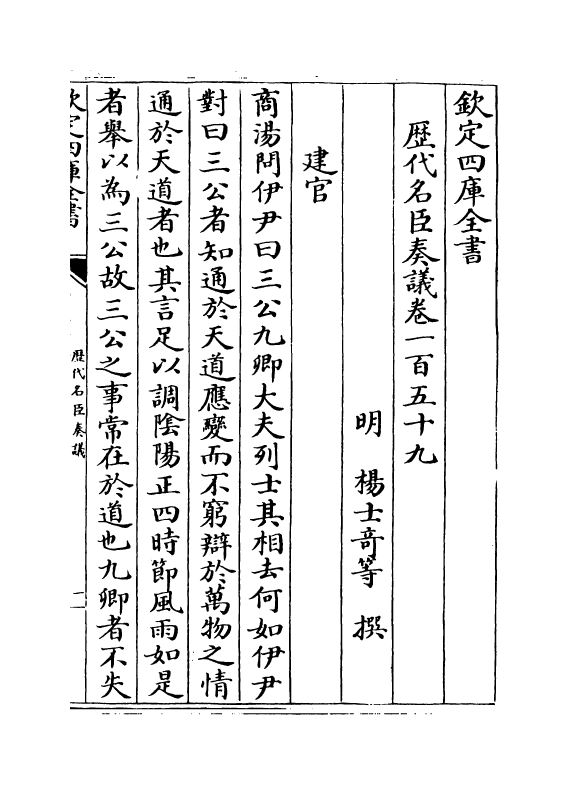 欽定四庫全書
歴代名臣奏議卷一百五十九
明　楊士竒等　撰
建官
商湯問伊尹曰三公九卿大夫列士其相去何如伊尹
對曰三公者知通於天道應變而不窮辯於萬物之情
通於天道者也其言足以調隂陽正四時節風雨如是
者舉以為三公故三公之事常在於道也九卿者不失
欽定四庫全書
歴代名臣奏議